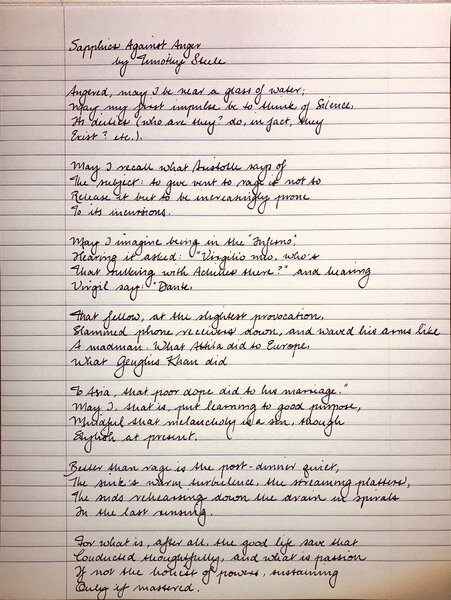 Sapphics Against Anger
by Timothy Steele
Angered, may I be near a glass of water;
May my first impulse be to think of Silence,
Its deities (who are they? do, in fact, they
Exist? etc.).
May I recall what Aristotle says of
The subject: to give vent to rage is not to
Release it but to be increasingly prone
To its incursions.
May I imagine being in the "Inferno",
Hearing it asked: "Virgilio mio, who's
That sulking with Achilles there?" and hearing
Virgil say: "Dante,
That fellow, at the slightest provocation,
Slammed phone receivers down, and waved his arms like
A madman. What Attila did to Europe,
What Genghis Khan did
To Asia, that poor dope did to his marriage."
May I, that is, put learning to good purpose,
Mindful that melancholy is a sin, though
Stylish at present.
Better than rage is the post-dinner quiet,
The sink's warm turbulence, the streaming platters,
The suds rehearsing down the drain in spirals
In the last rinsing.
For what is, after all, the good life save that
Conducted thoughtfully, and what is passion
If not the holiest of powers, sustaining
Only if mastered.